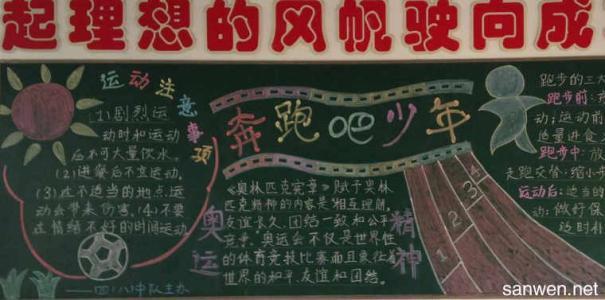 起理想的风帆驶向成
运动注意事项
(1)剧烈运
动时和运动
后不可大量饮水。
(2)进餐后不宜运动。
(3)在不适当的地点运
动会带来伤害。(4)不要
在情绪不好的时间运动
——四(八)中队主办
奔跑吧少年
奥运
《奥林匹克宪章》赋予奥林
匹克精神的内容是相互理解、
友谊长久、团结一致和公平
竞争。奥运会不仅是世界性
的体育竞技比赛而且象征着
世界的和平、友谊和团结。
精神
1
2
3
4
跑步的三大
跑步前:
动;运动前
适量进食
跑步中:放
走跑交替:缩小步
运动后:适当的
动:做好保
及时补
sanwen.net